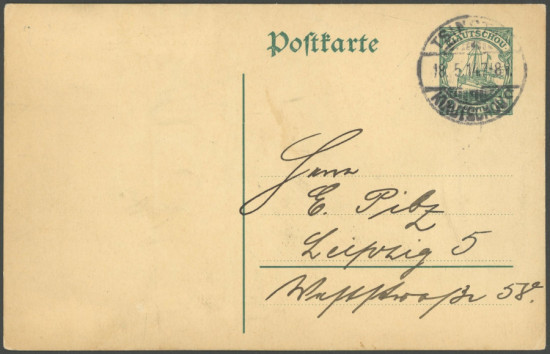 Postkarte
KIAUTSCHOU
18.5.14 7-8V.
KIAUTSCHOU
Herrn
E. Pilz
Leipzig 5
Weststraße 58